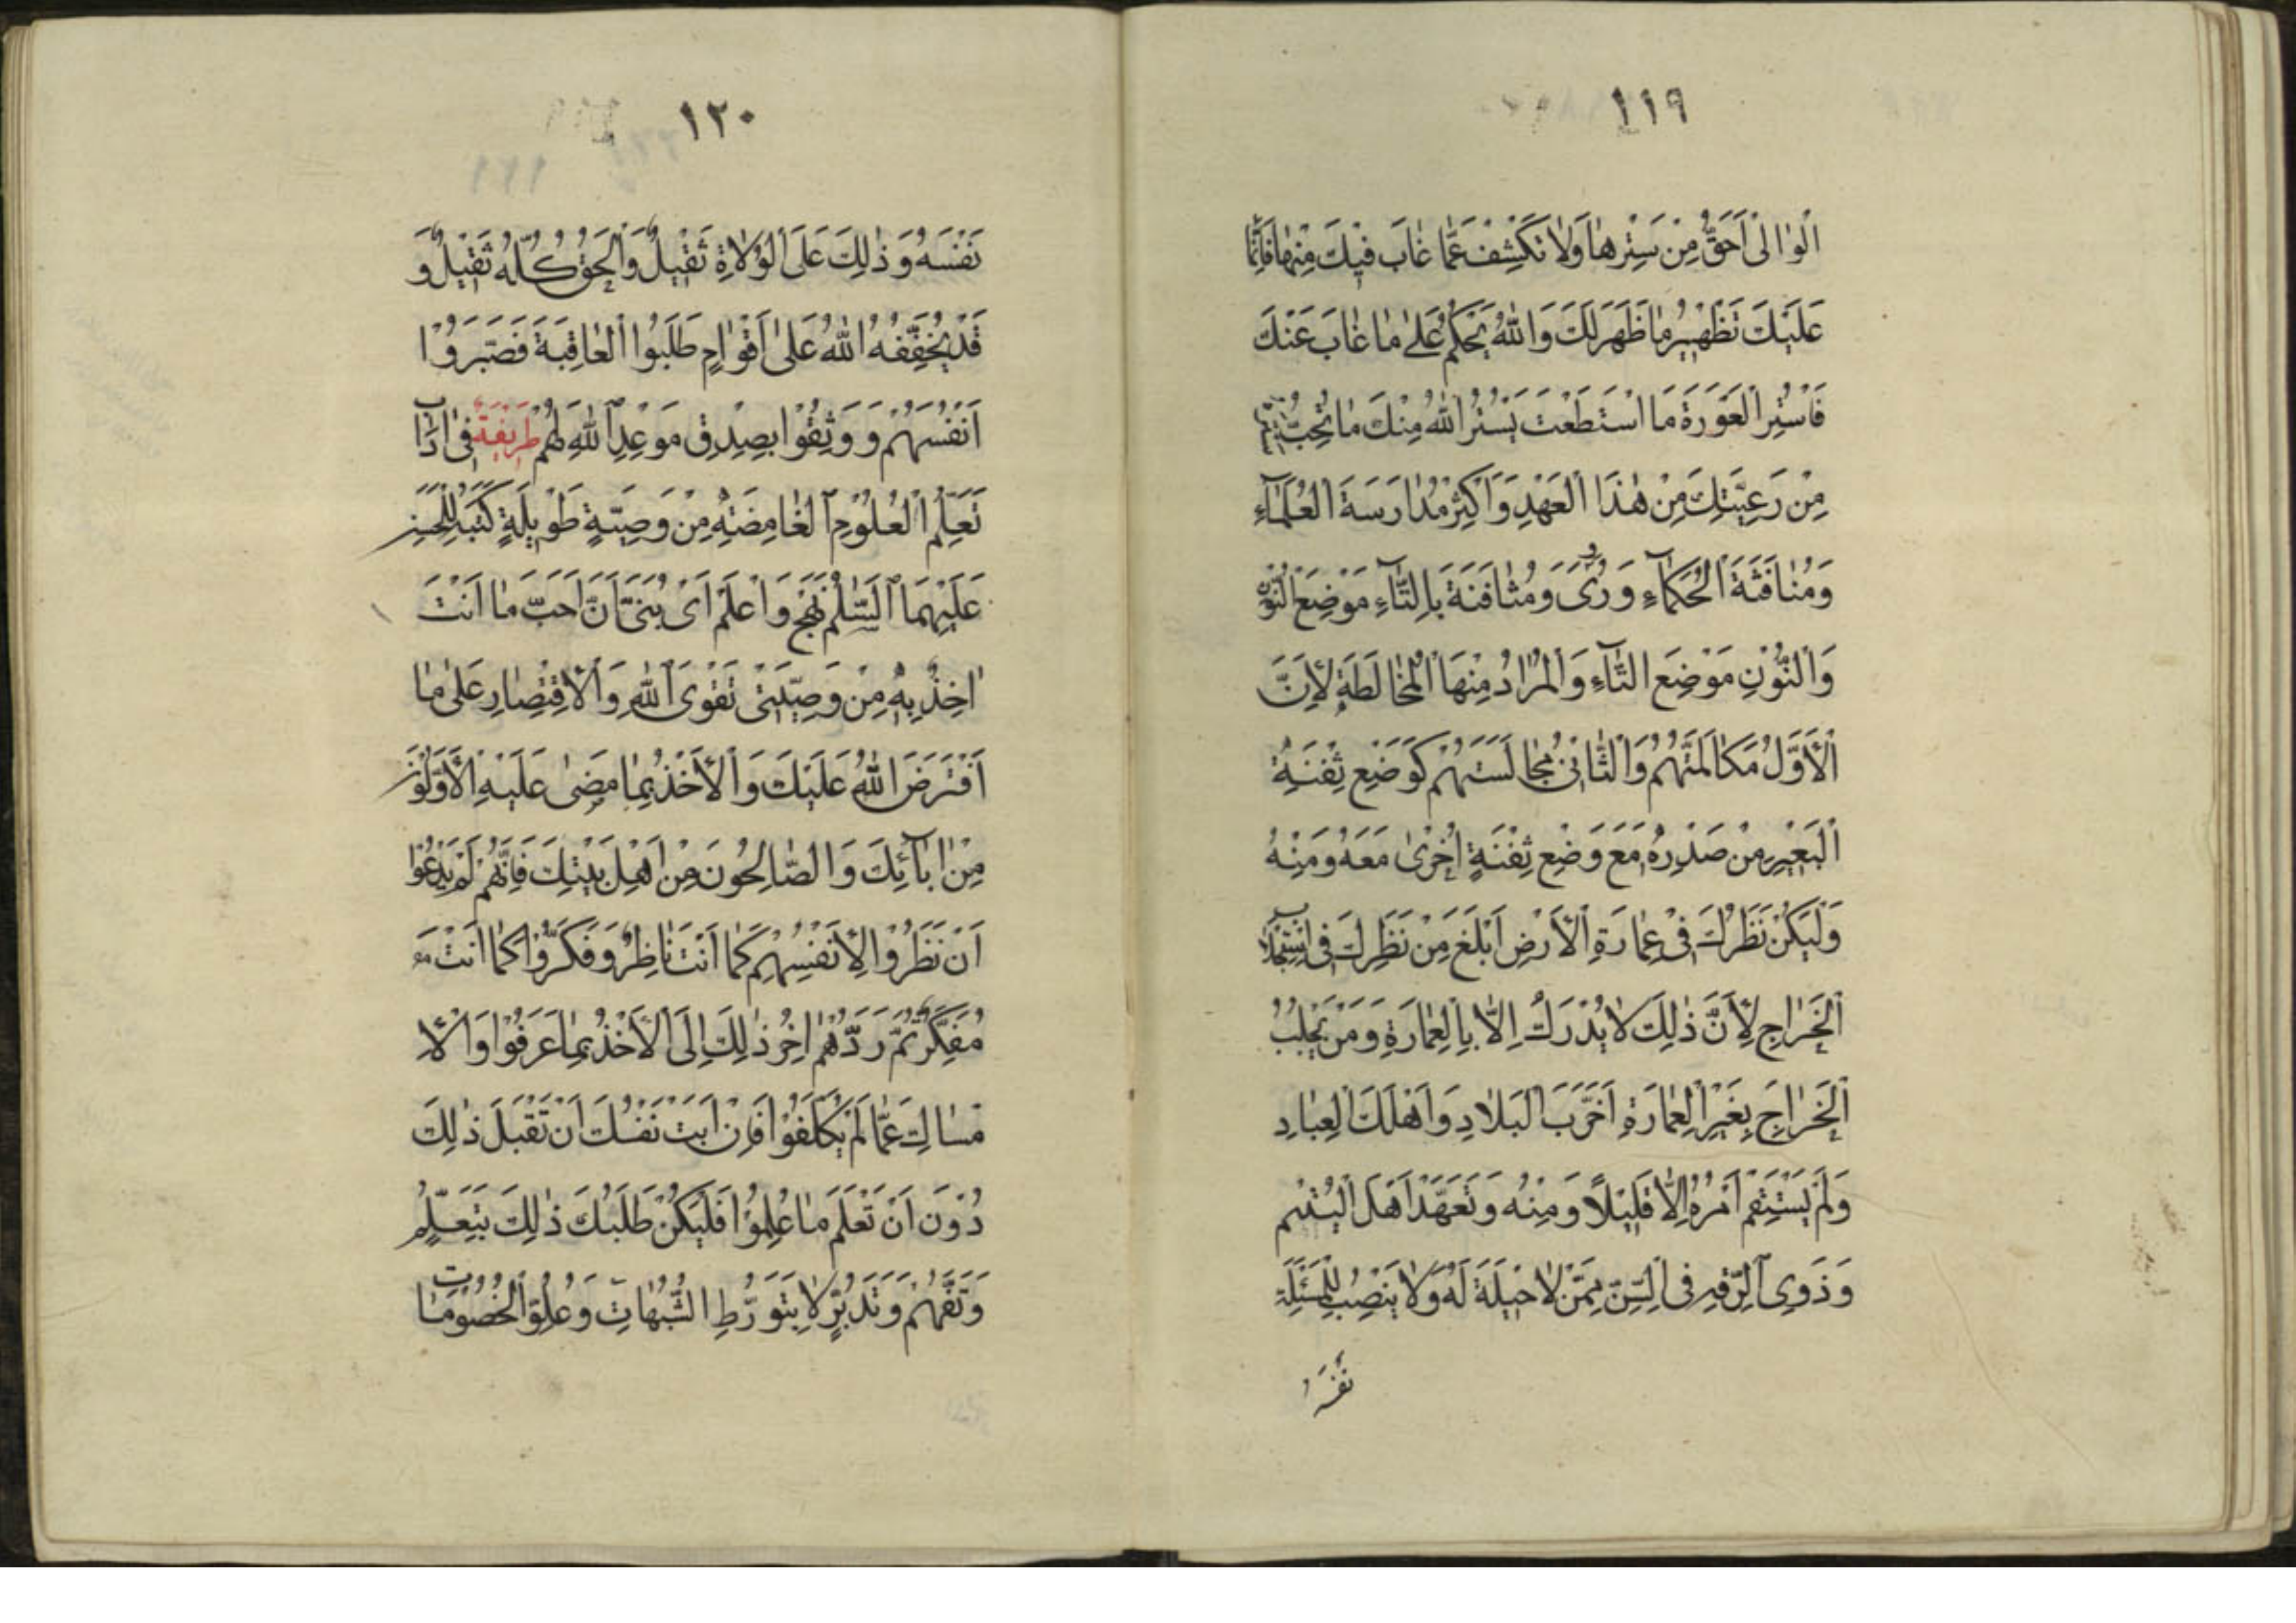 ١١٩
الْوٰالىٰ اَحَقُّ مِنْ سَتْرِهٰا وَلٰا تَكْشِفْ عَمّٰا غٰابَ فيٖكَ مِنْهٰا فَاِنَّمٰا
عَلَيْكَ تَطْهيٖرُ مٰا ظَهَرَ لَكَ وَاللّٰهُ يَحْكُمُ عَلىٰ مٰا غٰابَ عَنْكَ
فَاسْتِرِ الْعَوْرَةَ مَا اسْتَطَعْتَ يَسْتُرُ اللّٰهُ مِنْكَ مٰا تُحِبُّ سَتْرَهُ
مِنْ رَعِيَّتِكَ مِنْ هٰذَا الْعَهْدِ وَاَكْثِرْ مُدٰارَسَةَ الْعُلَمٰاءِ
وَمُنٰافَثَةَ الْحُكَمٰاءِ وَرُوِىَ وَمُثٰافَنَةَ بِالثّٰاءِ مَوْضِعَ النُّوْنِ
وَالنُّوْنِ مَوْضِعَ الثّٰاءِ وَالْمُرٰادُ مِنْهَا الْمُخٰالَطَةِ لِاَنَّ
الْاَوَّلُ مُكٰالَمَتُهُمْ وَالثّٰانيٖ مُجٰالَسَتُهُمْ كَوَضْعِ ثِفْنَةِ
الْبَعيٖرِ مِنْ صَدْرِهِ مَعَ وَضْعِ ثِفْنَةٍ اُخْرىٰ مَعَهُ وَمِنْهُ
وَلْيَكُنْ نَظَرُكَ فيٖ عِمٰارَةِ الْاَرْضِ اَبْلَغَ مِنْ نَظَرِكَ فِى اسْتِجْلٰابِ
الْخَرٰاجِ لِاَنَّ ذٰلِكَ لٰا يُدْرَكُ اِلّٰا بِالْعِمٰارَةِ وَمَنْ يَجْلِبُ
الْخَرٰاجَ بِغَيْرِ الْعِمٰارَةِ اَخْرَبَ الْبَلٰادِ وَاَهْلَكَ الْعِبٰادِ
وَلَمْ يَسْتَقِمْ اَمْرُهُ اِلّٰا قَليٖلًا وَمِنْهُ وَتَعَهَّدْ اَهْلَ الْيُتْمِ
وَذَوِى الرِّقَّةِ فِى السِّنِّ مِمَّنْ لٰا حيٖلَةَ لَهُ وَلٰا يَنْصِبُ لِلْمَسْئَلَةِ
نَفْسَهُ
١٢٠
نَفْسَهُ وَذٰلِكَ عَلَى الْوُلٰاةِ ثَقيٖلٌ وَالْحَقُّ كُلُّهُ ثَقيٖلٌ وَ
قَدْ يُخَفِّفُهُ اللّٰهُ عَلىٰ اَقْوٰامٍ طَلَبُوا الْعٰاقِبَةَ فَصَبَرُوْا
اَنْفُسَهُمْ وَ وَثِقُوْا بِصِدْقِ مَوْعِدِ اللّٰهِ لَهُمْ طَريٖقَةٌ فيٖ اٰدٰابِ
تَعَلُّمِ الْعُلُوْمِ الْغٰامِضَةِ مِنْ وَصِيَّةٍ طَويٖلَةٍ كَتَبَهُ لِلْحَسَنِ
عَلَيْهِمَا السَّلٰمُ نَهْجٌ وَاعْلَمْ اَىْ بُنَىَّ اَنَّ اَحَبَّ مٰا اَنْتَ
اٰخِذٌ بِهِ مِنْ وَصِيَّتيٖ تَقْوَى اللّٰهِ وَالْاِقْتِصٰارِ عَلىٰ مٰا
افْتَرَضَ اللّٰهُ عَلَيْكَ وَالْاَخْذُ بِمٰا مَضىٰ عَلَيْهِ الْاَوَّلُوْنَ
مِنْ اٰبٰائِكَ وَالصّٰالِحُونَ مِنْ اَهْلِ بَيْتِكَ فَاِنَّهُمْ لَمْ يَدَعُوْا
اَنْ نَظَرُوْا لِاَنْفُسِهِمْ كَمٰا اَنْتَ نٰاظِرٌ وَفَكَّرُوْا كَمٰا اَنْتَ
مُفَكِّرٌ ثُمَّ رَدَّهُمْ اٰخِرُ ذٰلِكَ اِلَى الْاَخْذِ بِمٰا عَرَفُوْا وَالْاِ
مْسٰاكِ عَمّٰا لَمْ يُكَلَّفُوْا فَاِنْ اَبَتْ نَفْسُكَ اَنْ تَقْبَلَ ذٰلِكَ
دُوْنَ اَنْ تَعْلَمَ مٰا عُلِمُوْا فَلْيَكُنْ طَلَبُكَ ذٰلِكَ بِتَعَلُّمٍ
وَتَفَهُّمٍ وَتَدَبُّرٍ لٰا بِتَوَرُّطِ الشُّبُهٰاتِ وَعُلُوِّ الْخُصُوْمٰاتِ